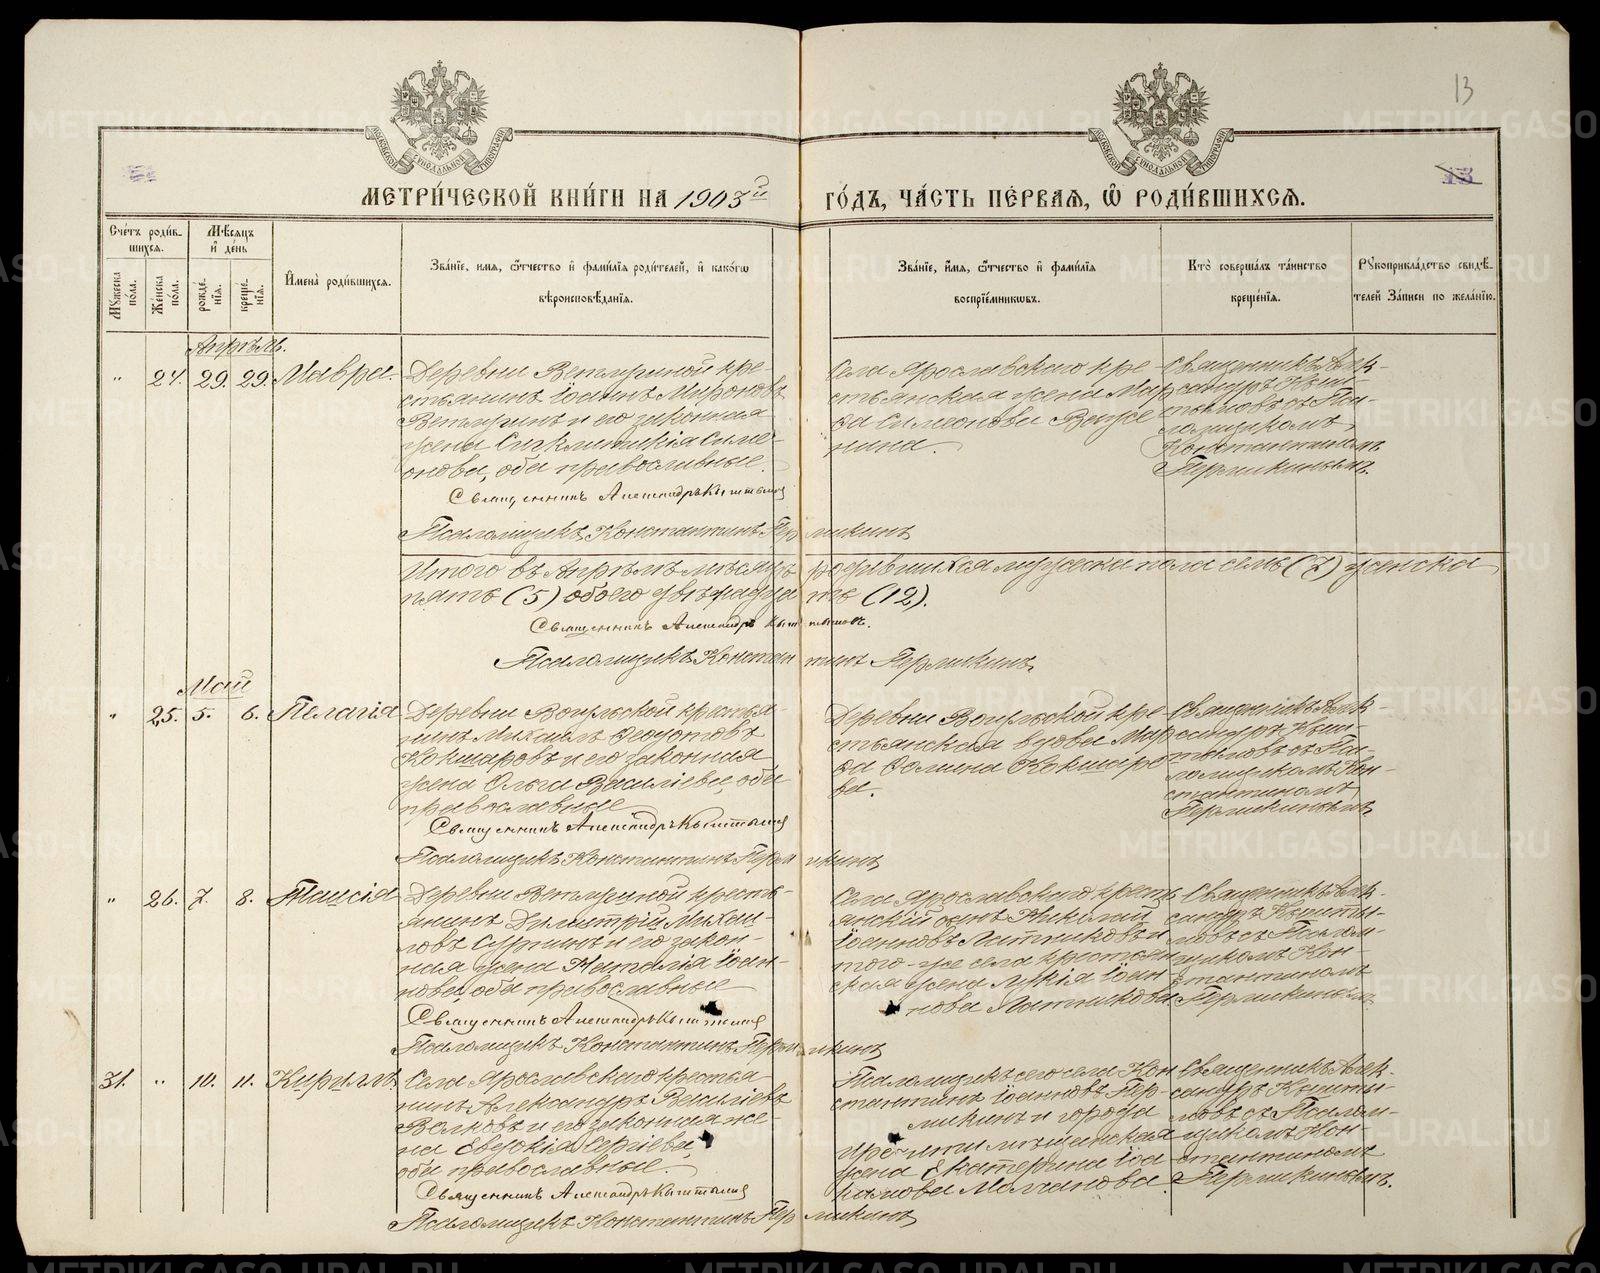 13
13
МЕТРИ́ЧЕСКОЙ КНИ́ГИ НА 1903й ГО́ДЪ, ЧА́СТЬ ПЕ́РВАЯ, Ѡ҆ РОДИ́ВШИХСЯ.
Сче́тъ роди́вшихся.
Мѣ́сяцъ и҆ де́нь
Му́жеска по́ла.
Же́нска по́ла.
рожде́нїя.
креще́нїя.
И҆мена̀ роди́вшихся.
Зва́нїе, имя, ѻ҆́тчество и҆ фами́лїя роди́телей, и҆ како́гѡ вѣроисповѣ́данїя.
Зва́нїе, и҆́мя, ѻ҆́тчество и҆ фами́лїя воспрїе́мникѡвъ.
Кто̀ соверша́лъ та́инство креще́нїя.
Рꙋкоприкла́дство свидѣ́телей За́писи по жела́нїю.
Апрѣль.
" 24. 29. 29. Мавра.
Деревни Ветлугиной кре-
стьянинъ Іоаннъ Мироновъ
Ветлугинъ и его законная
жена Сигклитикія Симе-
онова, оба православные.
Священникъ Александръ Кыштымов
Псаломщикъ Константинъ Пермикинъ
Села Ярославскаго кре-
стьянская жена Мар
ѳа Симеонова
нина.
Священникъ Алек-
сандръ Кыш-
тымовъ съ Пса-
ломщикомъ
Константиномъ
Пермикинымъ.
Итого въ Апрѣлѣ мѣсяцѣ родившихся мужеска пола семь (7) женска
пять (5) обоего двѣнадцать (12).
Священникъ Александръ Кыштымовъ.
Псаломщикъ Константинъ Пермикинъ
Май
" 25. 5. 6. Пелагія
Деревни крестья-
нинъ Михаилъ Ѳедотовъ
Кокшаровъ и его законная
жена Ольга Василіева, оба
православные
Священникъ Александръ Кыштымов
Псаломщикъ Константинъ Пермикинъ
Деревни кре-
стьянская вдова Мар
ѳа Ѳомина Кокшаро
ва.
Священникъ Алек-
сандръ Кыш-
тымовъ съ Пса-
ломщикомъ Кон-
стантиномъ
Пермикинымъ
" 26. 7. 8. Таисія
Деревни Ветлугиной кресть-
янинъ Димитрій Михаи-
ловъ Суринъ и его закон-
ная жена Наталія Іоан-
нова, оба православные
Священникъ Александръ Кыштымов
Псаломщикъ Константинъ Пермикинъ
Села Ярославскаго кресть
янскій сынъ Николай
Іоанновъ Латниковъ и
того-же села крестьян
ская жена Лукія Іоан-
нова Латникова
Священникъ Алек-
сандръ Кышты-
мовъ съ Псалом-
щикомъ Кон-
стантиномъ
Пермикинымъ
31. " 10. 11. Кириллъ
Села Ярославскаго крестья-
нинъ Александръ Василіевъ
Волковъ и его законная же-
на Евдокія Сергіева,
оба православные.
Священникъ Александръ Кыштымов
Псаломщикъ Константинъ Пермикинъ
Псаломщикъ сего села Кон
стантинъ Іоанновъ Пер-
микинъ и города
Ирбити мѣщанская
жена Екатерина Іоа
кимова
Священникъ Алек-
сандръ Кышты-
мовъ съ Псалом-
щикомъ Кон-
стантиномъ
Пермикинымъ.
METRIKI.GASO-URAL.RU